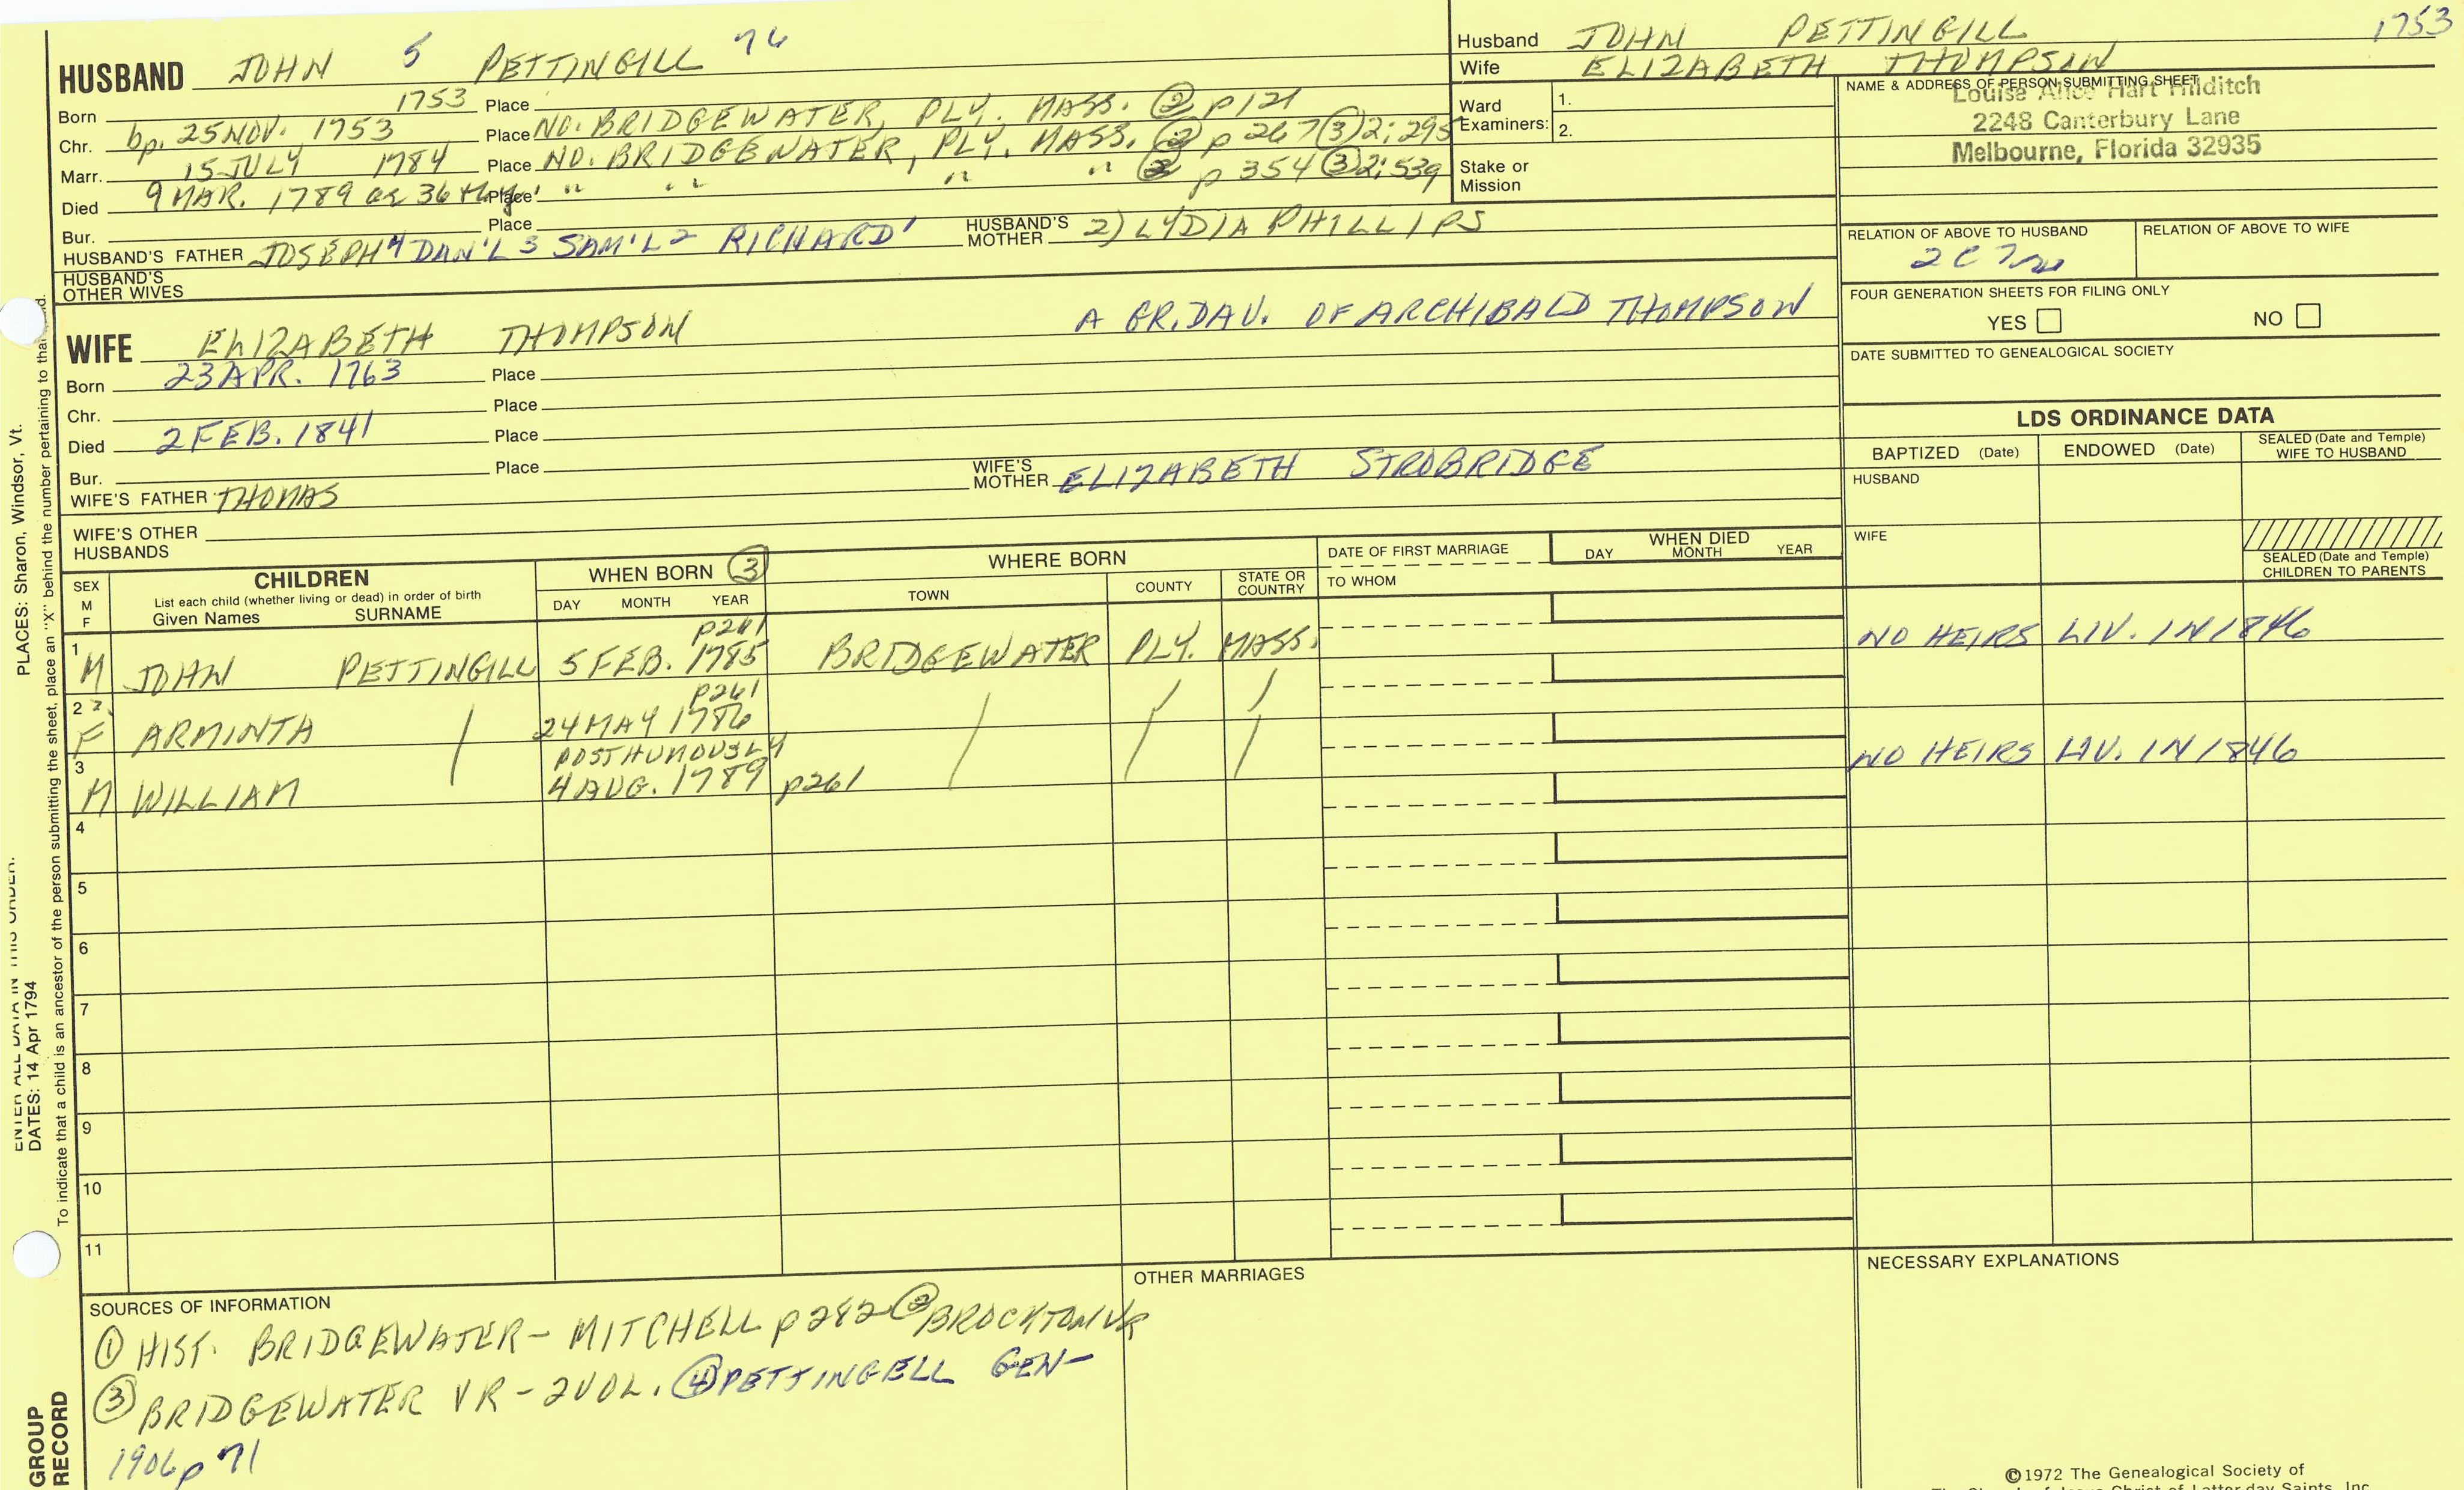 HUSBAND JOHN 5 PETTINGILL 76
Born 1753 Place NO. BRIDGEWATER, PLY. MASS. ② p121
Chr. bp. 25 NOV. 1753 Place NO. BRIDGEWATER, PLY. MASS. ② p 267 ③ 2:295
Marr. 15 JULY 1784 Place " " " " ② p 354 ③ 2:539
Died 9 MAR. 1789 ae 36 Place
Bur. Place
HUSBAND'S FATHER JOSEPH 4 DAN'L 3 SAM'L 2 RICHARD 1 HUSBAND'S MOTHER 2) LYDIA PHILLIPS
HUSBAND'S OTHER WIVES
WIFE ELIZABETH THOMPSON A GR. DAU. OF ARCHIBALD THOMPSON
Born 23 APR. 1763 Place
Chr. Place
Died 2 FEB. 1841 Place
Bur. Place
WIFE'S FATHER THOMAS WIFE'S MOTHER ELIZABETH STROBRIDGE
WIFE'S OTHER HUSBANDS
Husband JOHN PETTINGILL 1753
Wife ELIZABETH THOMPSON
Ward Examiners: 1. 2.
Stake or Mission
NAME & ADDRESS OF PERSON SUBMITTING SHEET
Louise Alice Hart Hilditch
2248 Canterbury Lane
Melbourne, Florida 32935
RELATION OF ABOVE TO HUSBAND RELATION OF ABOVE TO WIFE
2C7
FOUR GENERATION SHEETS FOR FILING ONLY
YES NO
DATE SUBMITTED TO GENEALOGICAL SOCIETY
LDS ORDINANCE DATA
BAPTIZED (Date) ENDOWED (Date) SEALED (Date and Temple) WIFE TO HUSBAND
HUSBAND
WIFE
SEALED (Date and Temple) CHILDREN TO PARENTS
SEX M F CHILDREN WHEN BORN ③ WHERE BORN DATE OF FIRST MARRIAGE WHEN DIED
List each child (whether living or dead) in order of birth
Given Names SURNAME DAY MONTH YEAR TOWN COUNTY STATE OR COUNTRY TO WHOM DAY MONTH YEAR
p261
1 M JOHN PETTINGILL 5 FEB. 1785 BRIDGEWATER PLY. MASS. NO HEIRS LIV. IN 1846
p261
2 F ARMINTA / 24 MAY 1786 / / /
POSTHUMOUSLY
3 M WILLIAM 4 AUG. 1789 p261 NO HEIRS LIV. IN 1846
4
5
6
7
8
9
10
11
SOURCES OF INFORMATION
① HIST. BRIDGEWATER - MITCHELL p 282 ② BROCKTON VR
③ BRIDGEWATER VR - 2 VOL. ④ PETTINGELL GEN -
1906 p 71
OTHER MARRIAGES
NECESSARY EXPLANATIONS
©1972 The Genealogical Society of
The Church of Jesus Christ of Latter-day Saints, Inc.
ENTER ALL DATA IN THIS ORDER.
DATES: 14 Apr 1794
PLACES: Sharon, Windsor, Vt.
To indicate that a child is an ancestor of the person submitting the sheet, place an "X" behind the number pertaining to that
GROUP
RECORD